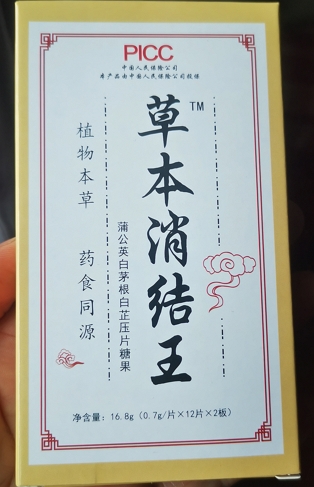 PICC
中国人民保险公司
本产品由中国人民保险公司承保
草本消结王™
蒲公英白茅根白芷压片糖果
植物本草 药食同源
净含量：16.8g（0.7g/片×12片×2板）